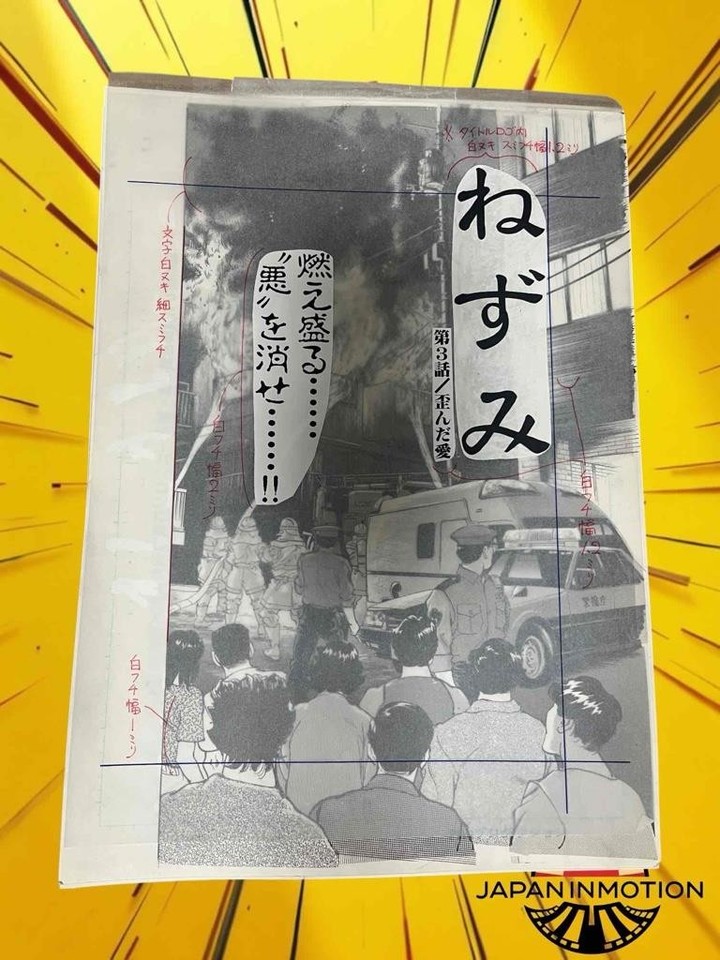 ※タイトルロゴ内
白ヌキ スミフチ幅1.2ミリ
ねずみ
第3話/歪んだ愛
燃え盛る……
〝悪〟を消せ……!!
文字白ヌキ 細スミフチ
白フチ幅2ミリ
白フチ幅1.2ミリ
白フチ幅1ミリ
警視庁
JAPANINMOTION